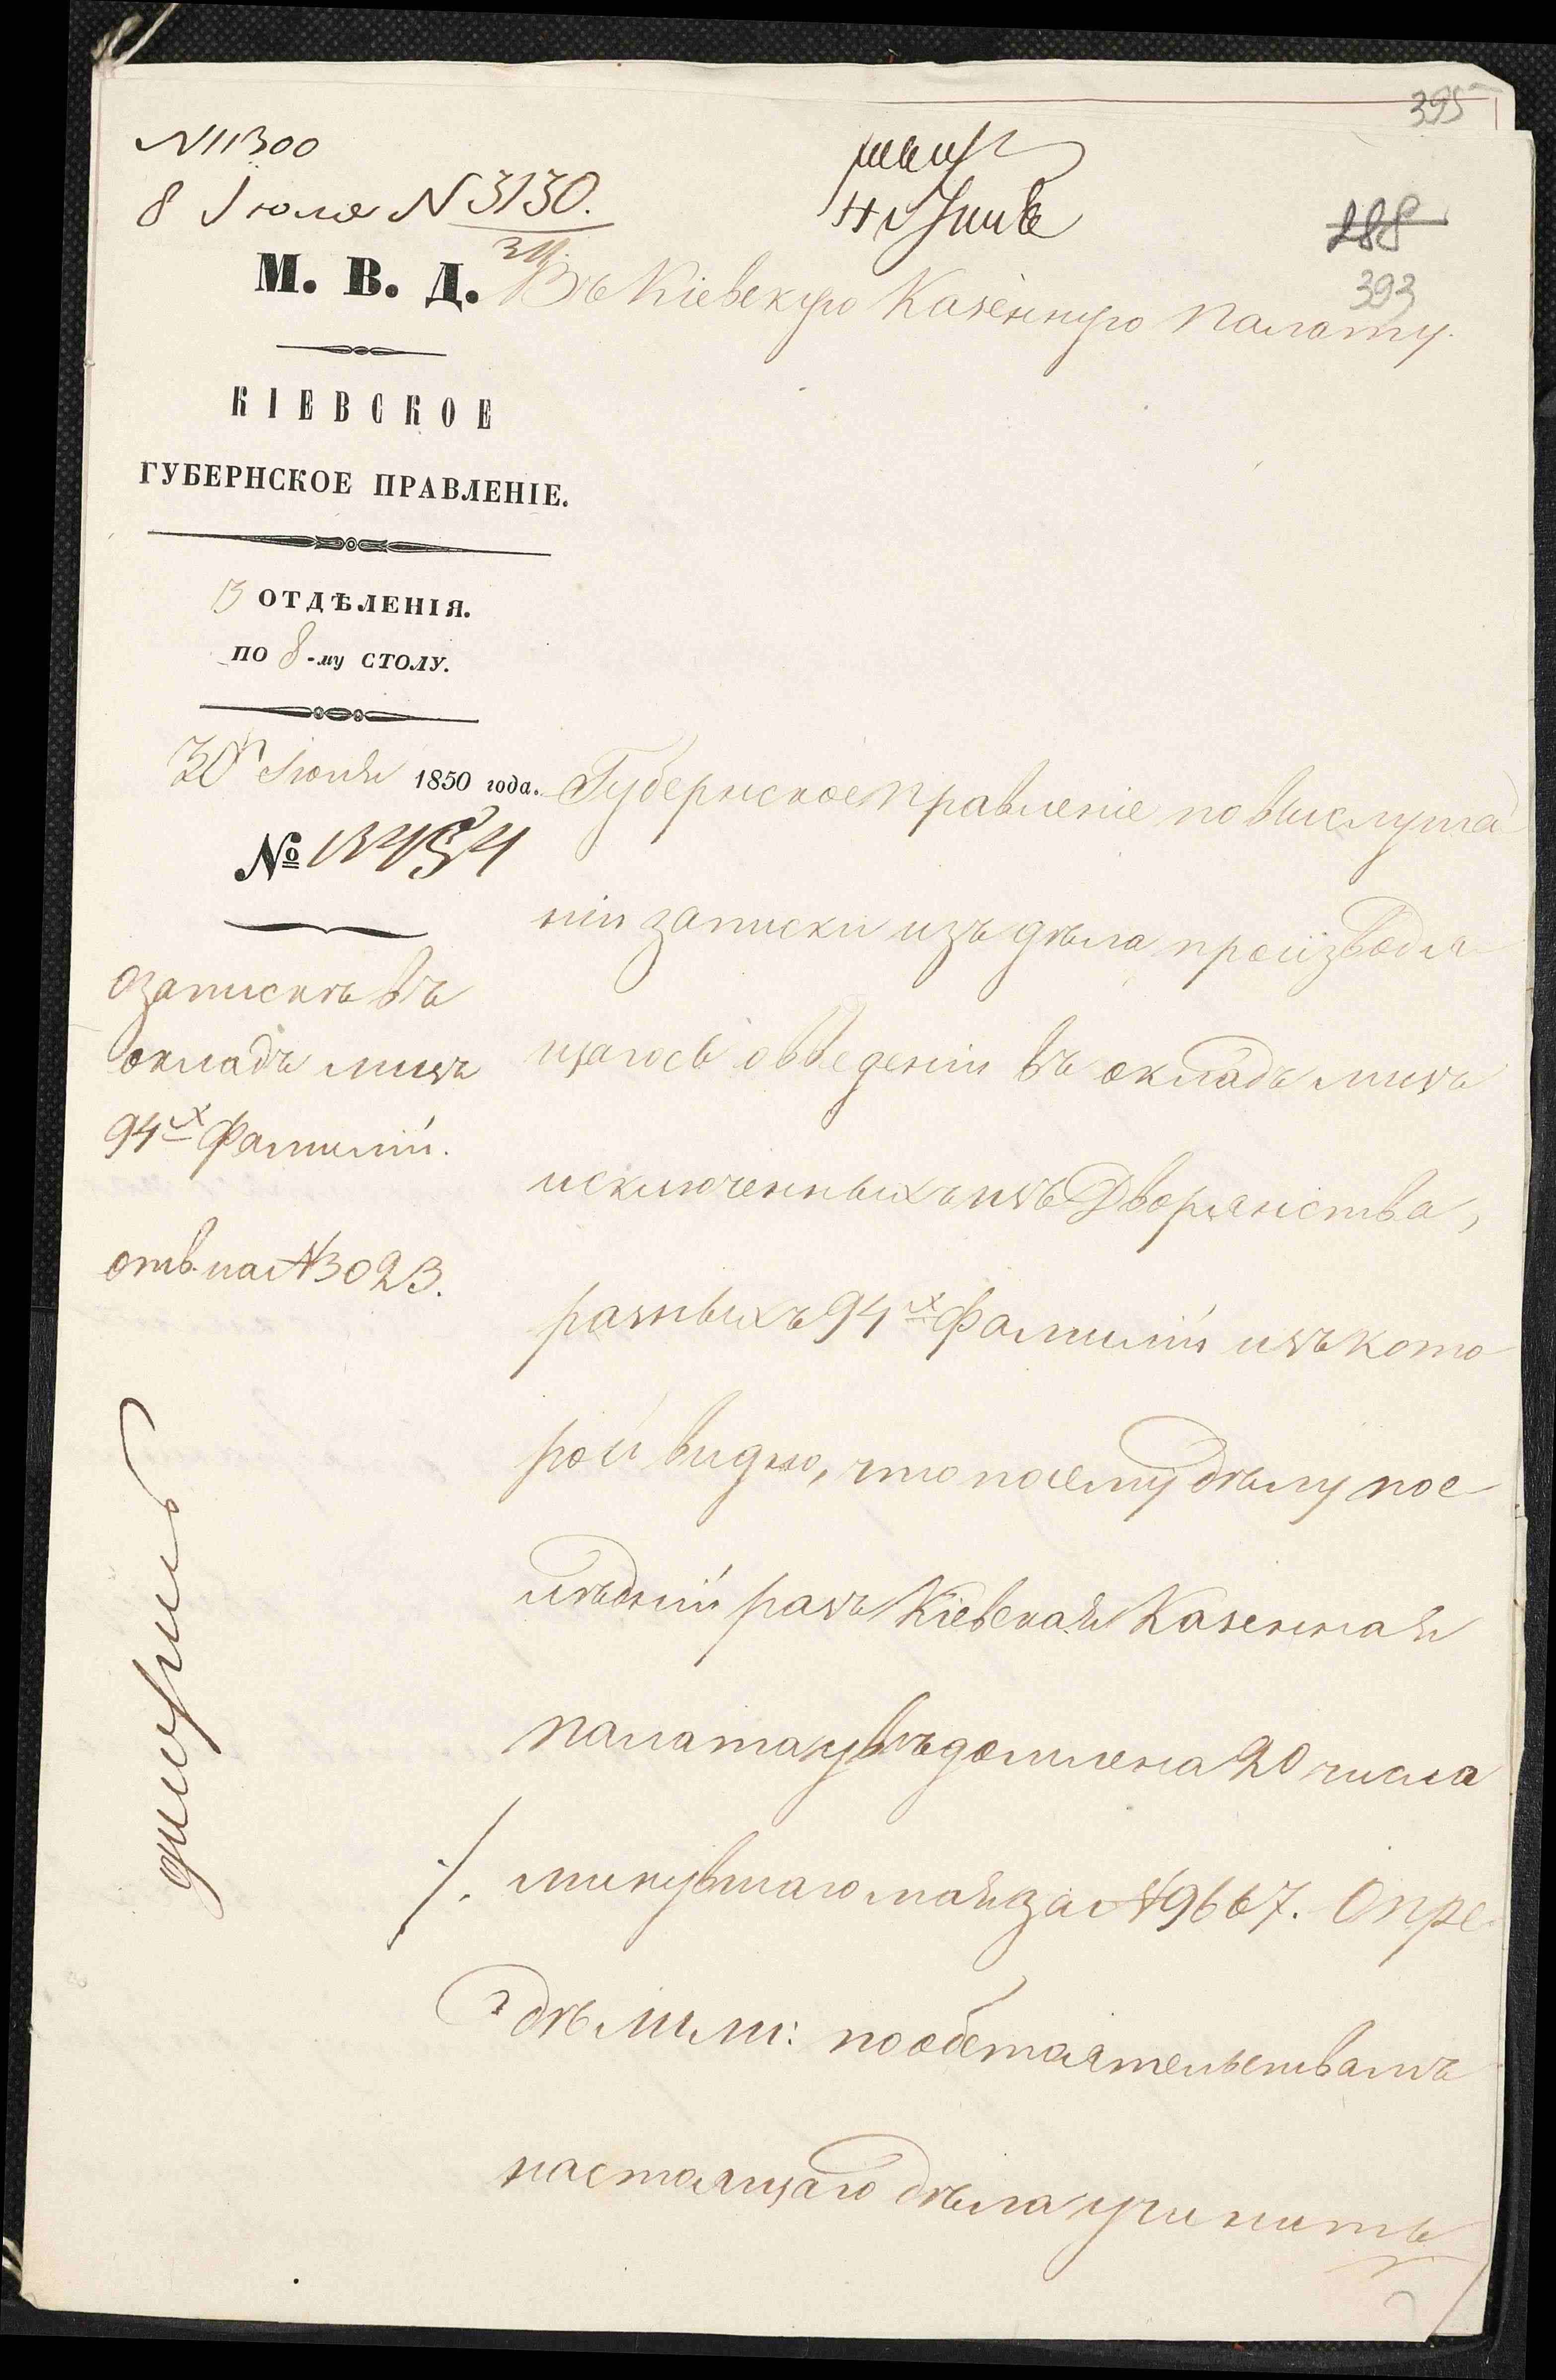 395
N 11300
8 Июля N 3130.
288
393
М. В. Д.
Въ Кіевскую Казенную Палату.
КІЕВСКОЕ
ГУБЕРНСКОЕ ПРАВЛЕНІЕ.
3 ОТДѢЛЕНІЯ.
ПО 8-му СТОЛУ.
30 Іюня 1850 года.
№ 13454
О запискѣ въ
окладъ лицъ
94х Фамилій.
отв. на N 3023.
Губернское Правленіе по выслуша
ніи записки изъ дѣла производя
щагося о введеніи въ окладъ лицъ
исключенныхъ изъ Дворянства,
разныхъ 94х Фамилій изъ кото
рой видно, что по сему дѣлу пос
лѣдній разъ Кіевская Казенная
Палата увѣдомлена 20 числа
минувшаго мая за N 9667. Опре
дѣлили: по обстоятельствамъ
настоящаго дѣла учинить